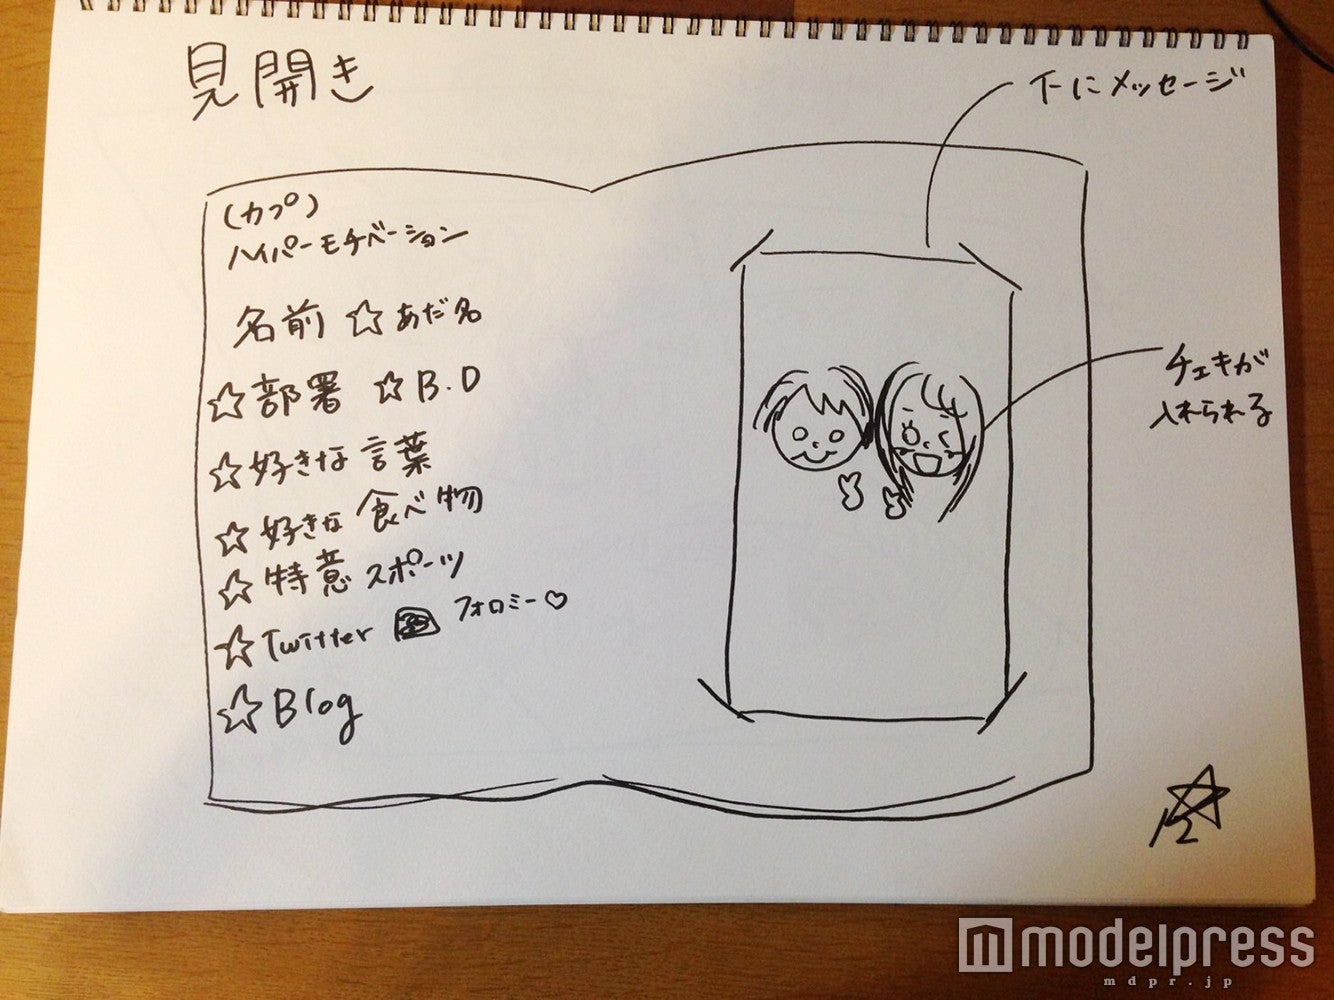 見開き
下にメッセージ
(カプ)
ハイパーモチベーション
名前 ☆ あだ名
☆部署 ☆B.D
☆好きな言葉
☆好きな食べ物
☆特意スポーツ
☆Twitter フォロミー♡
☆Blog
チェキが
入れられる
12
modelpress
mdpr.jp